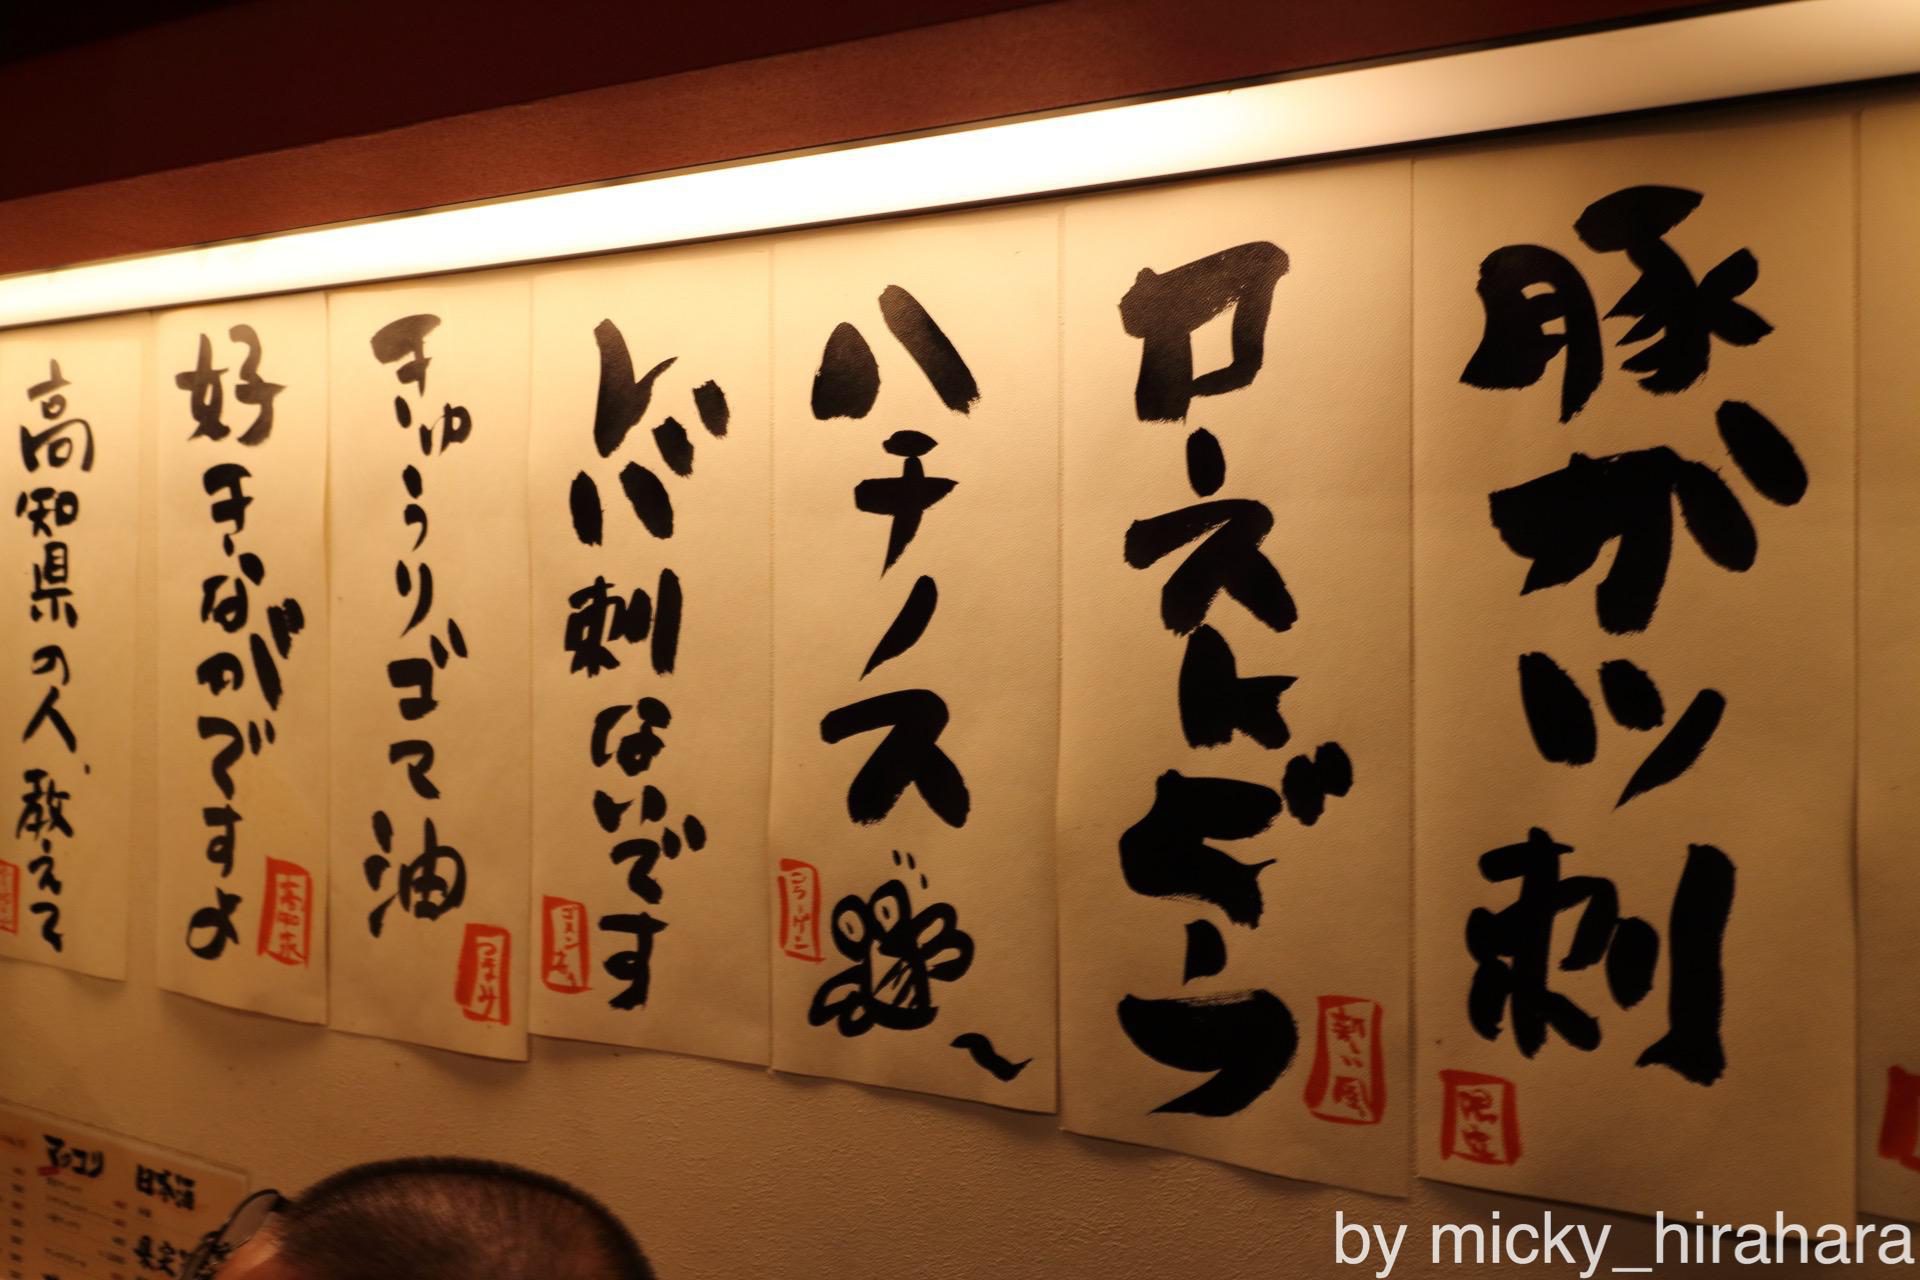 豚ガツ刺
限定
ロえんどう
ハチノス
こらーゲン
レバ刺ないです
ゴメンネ
きゅうりゴマ油
つまみ
好きながですよ
高知弁
高知県の人、教えて
マッコリ
日本酒
by micky_hirahara